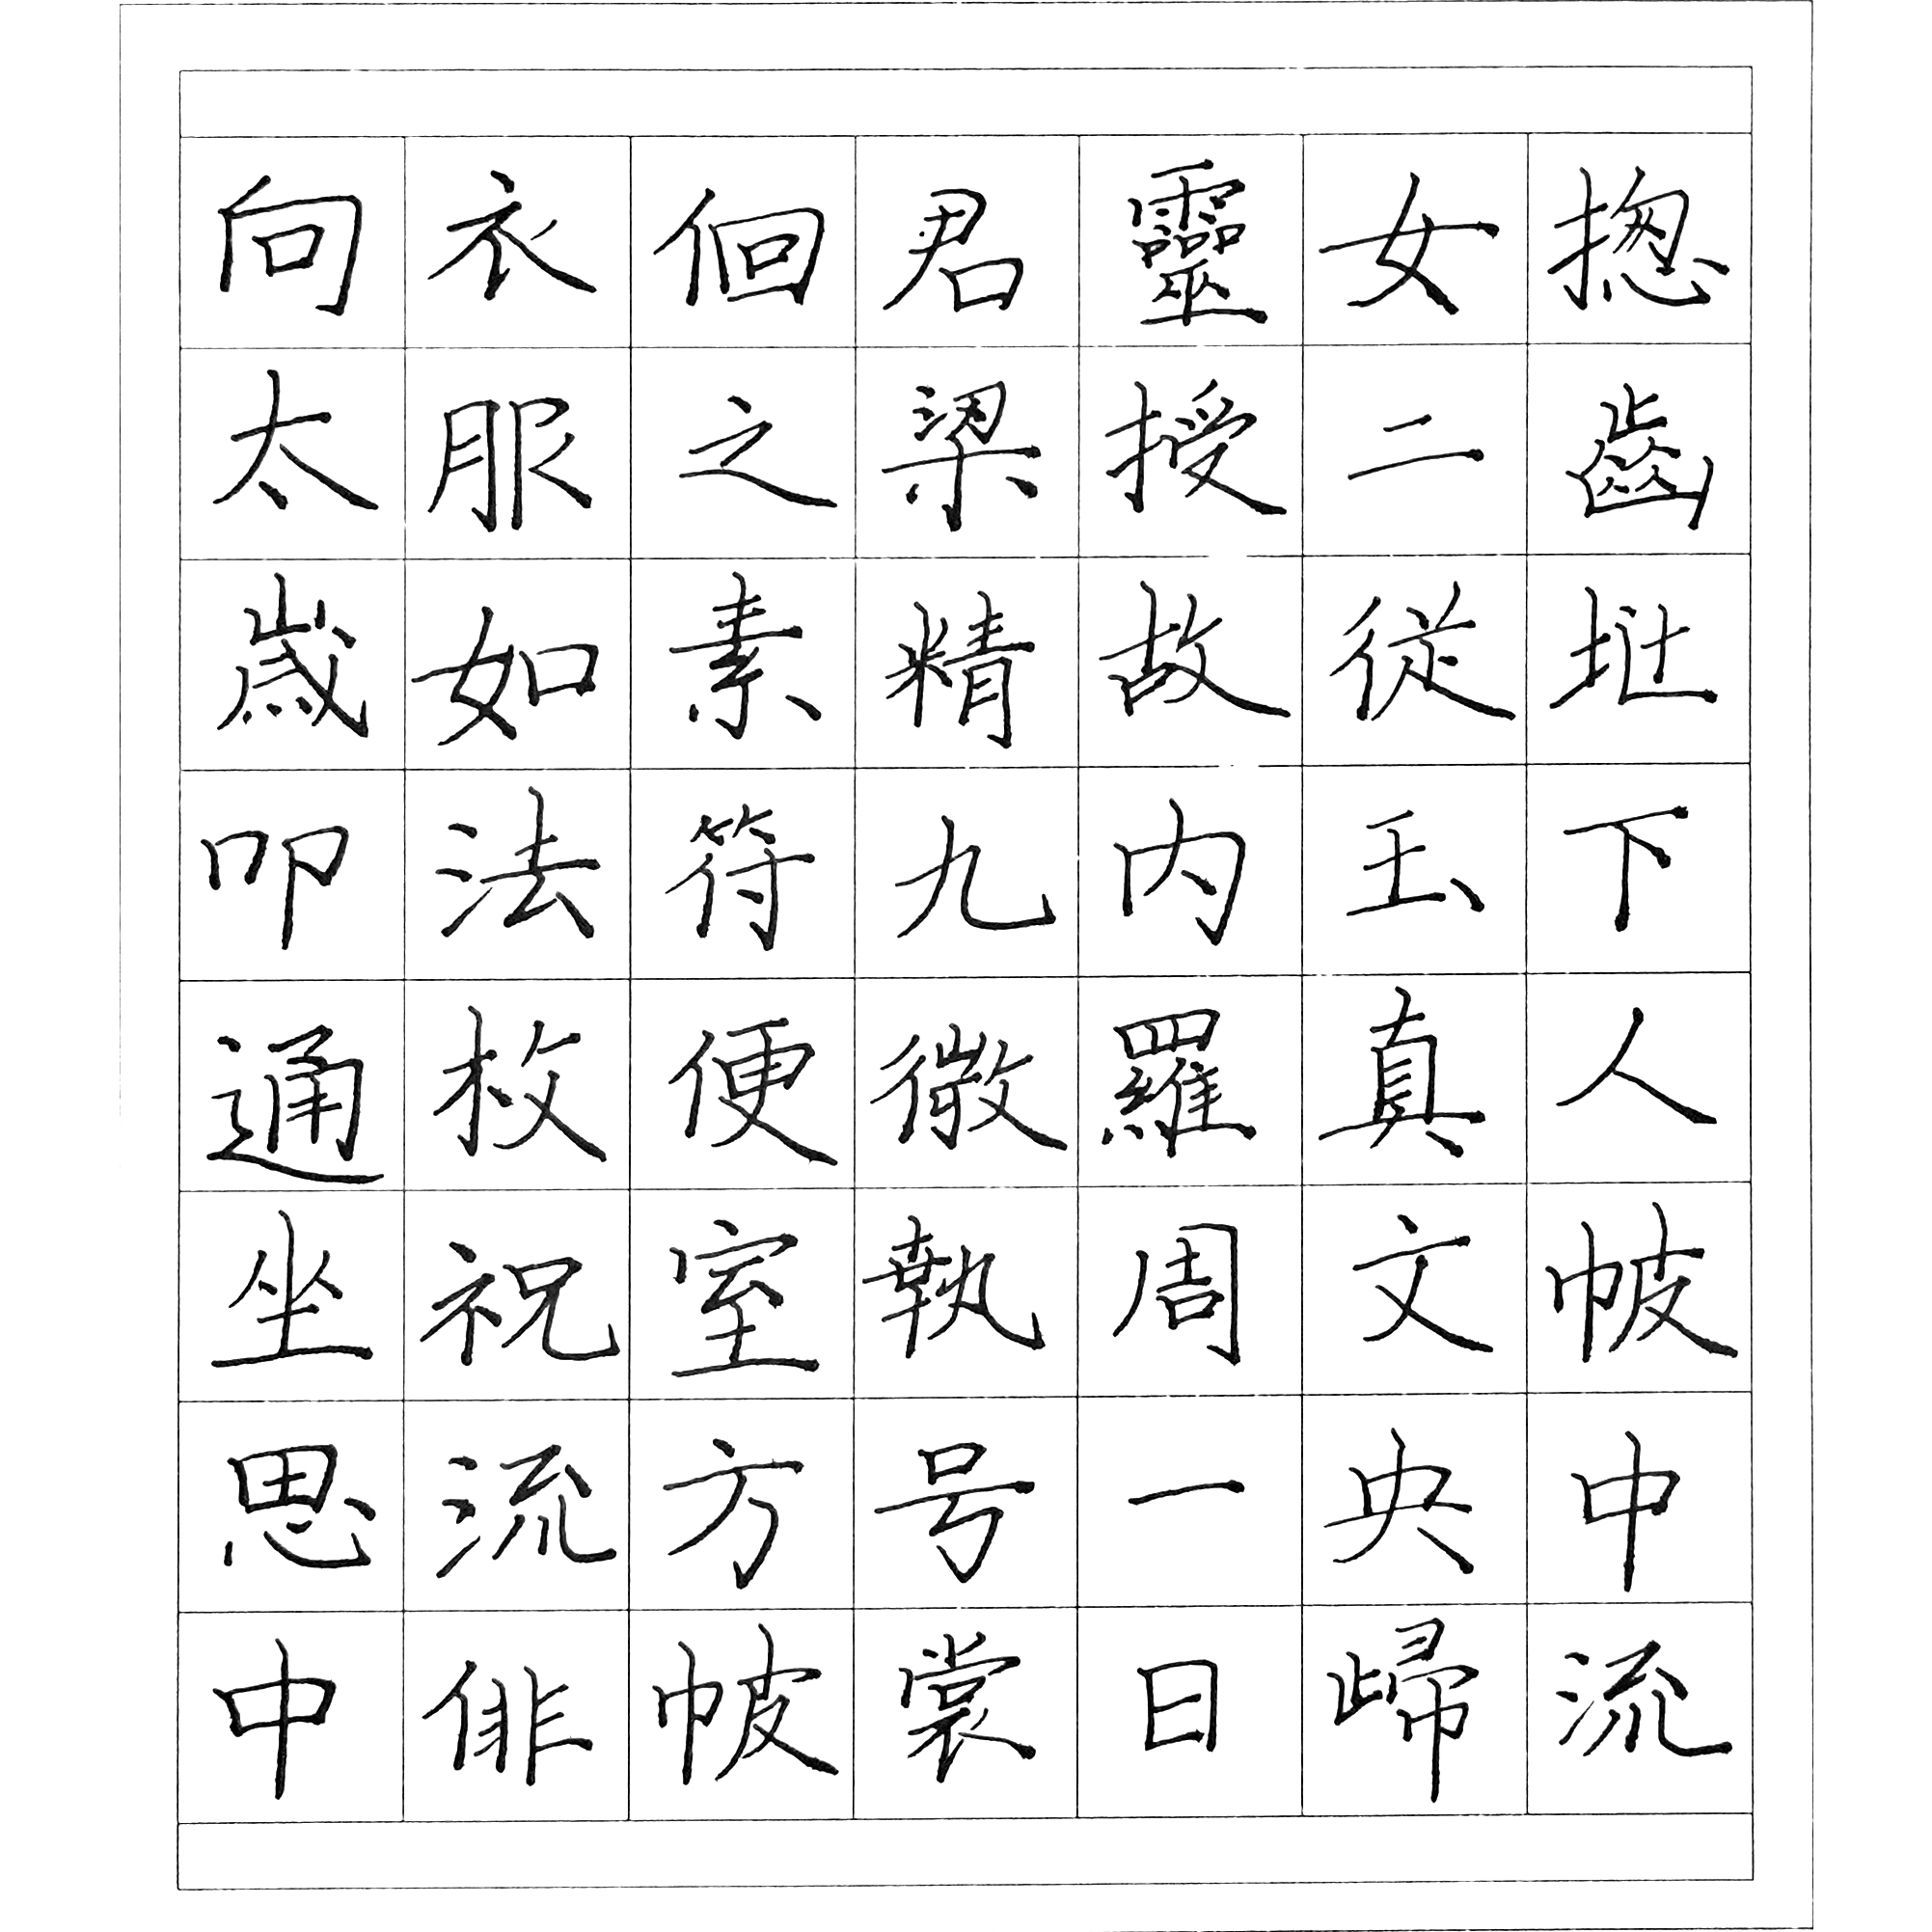 揔齒址下人帔中流
女二從玉真文央歸
靈授故内羅周一日
君梁精九微執号裳
佪之素符便室方帔
衣服如法枚祝流俳
向太歲叩通坐思中